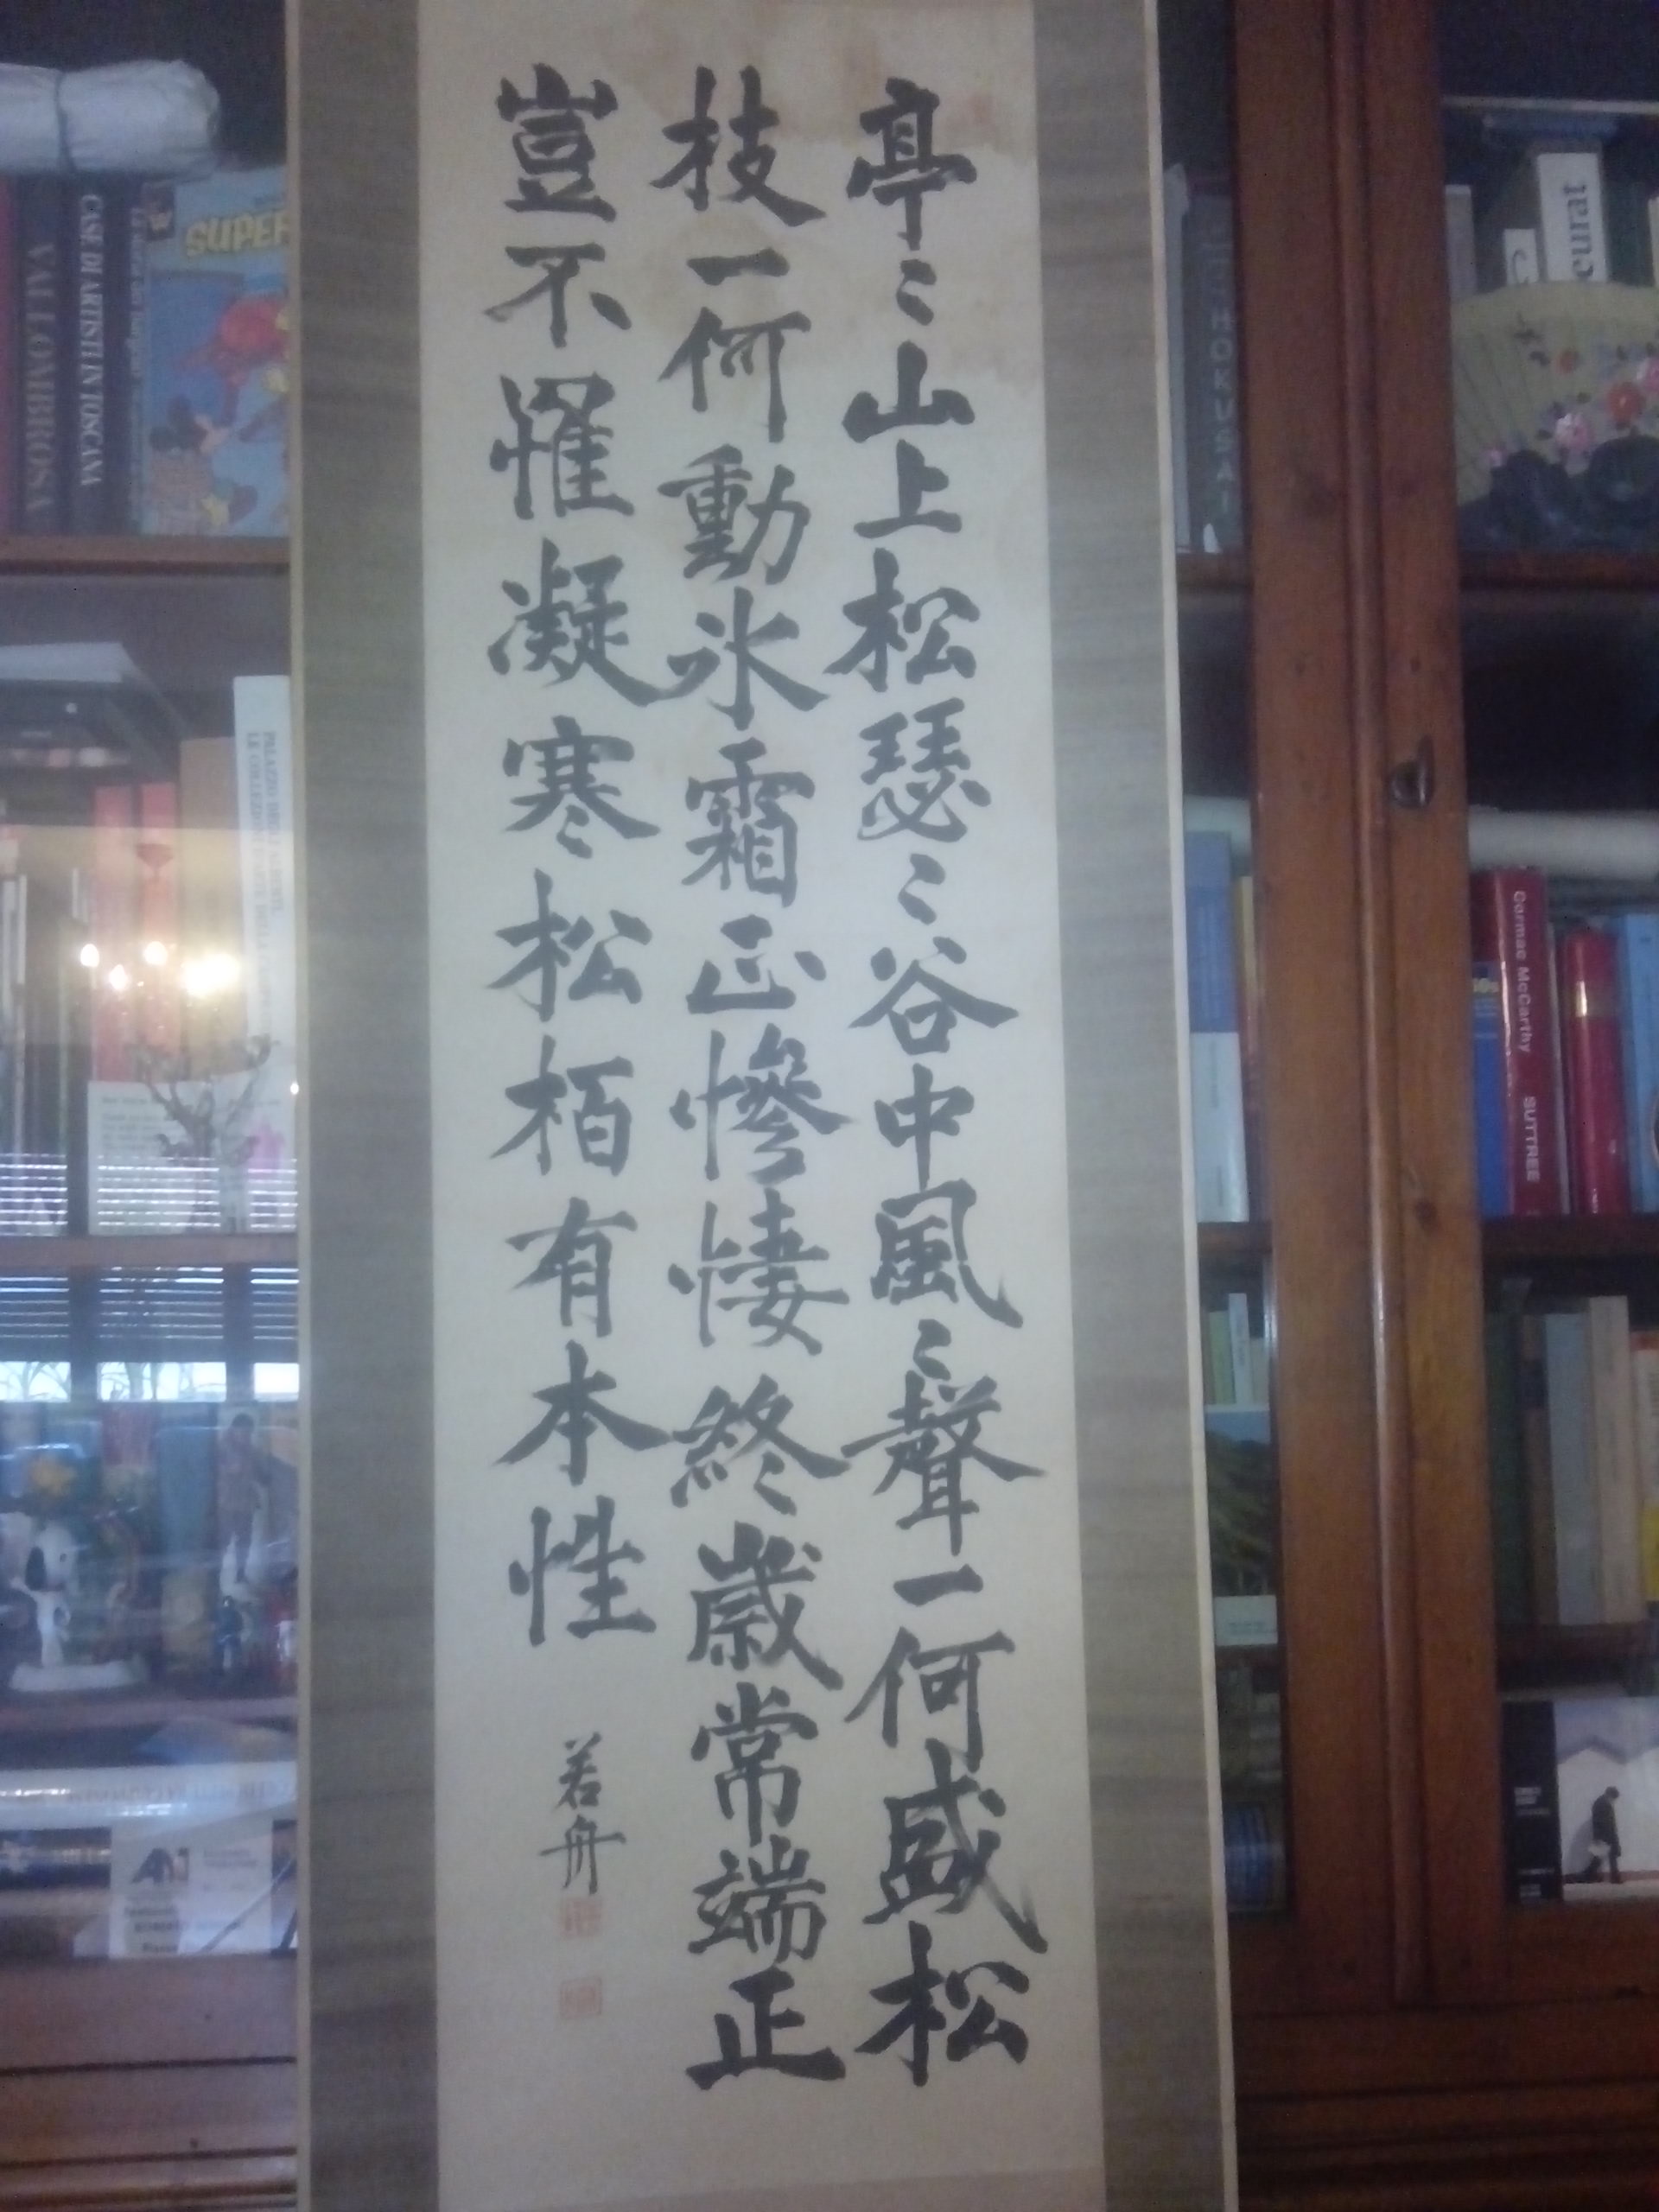 亭〻山上松瑟〻谷中風〻聲一何盛松
枝一何動氷霜正慘悽終歲常端正
豈不罹凝寒松栢有本性
若舟
VALLOMBROSA
CASE DI ARTISTI IN TOSCANA
SUPER
HOKUSAI
curat
Cormac McCarthy SUTTREE